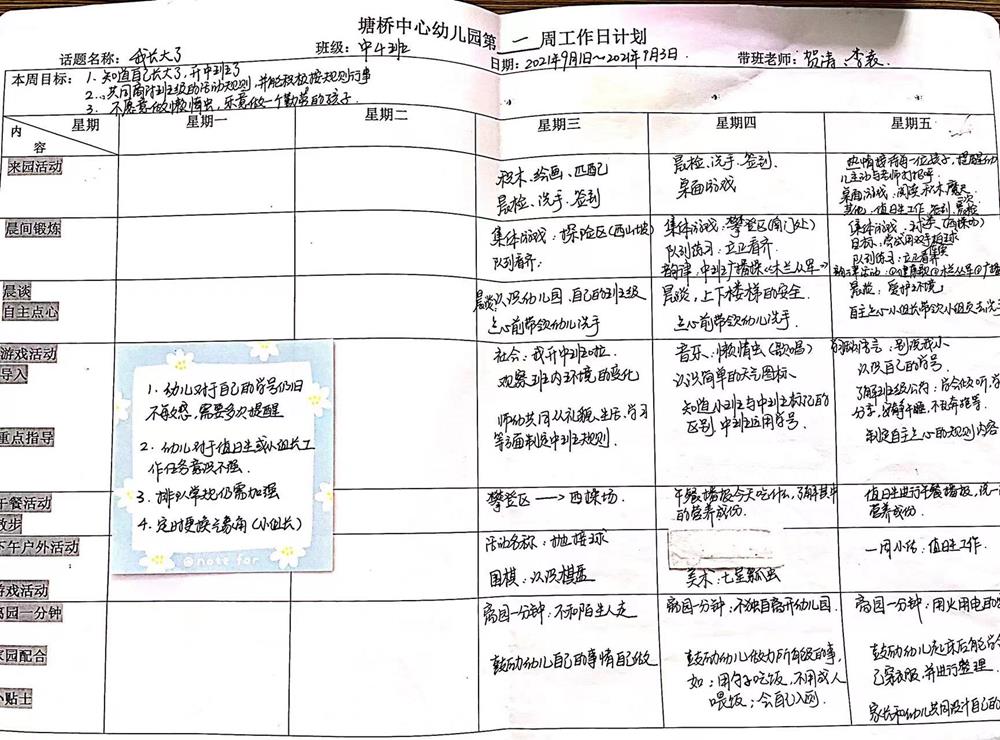 塘桥中心幼儿园第 一 周工作日计划
话题名称：我长大了 班级：中4班 日期：2021年9月1日～2021年9月3日 带班老师：贺清、李袁
本周目标：1、知道自己长大了，升中班了
2、共同商讨班级的活动规则，并能积极按规则行事
3、不愿意做懒惰虫，乐意做一个勤劳的孩子
星期
内容
星期一 星期二 星期三 星期四 星期五
来园活动
积木、绘画、匹配
晨检、洗手、签到
晨检、洗手、签到
桌面游戏
热情接待每一位孩子，提醒幼
儿主动与老师打招呼
桌面游戏：阅读积木
其他：值日生工作 签到 晨检
晨间锻炼
集体游戏：探险区（西山坡）
队列看齐：
集体游戏：攀登区（南门处）
队列练习：立正看齐
韵律：中班广播操《木兰从军》
集体游戏：球类（西操场）
目标：尝试用双手拍球
队列练习：立正看齐
晨谈
自主点心
晨谈：认识幼儿园、自己的班级
点心前带领幼儿洗手
晨谈：上下楼梯的安全
点心前带领幼儿洗手
晨谈：爱护环境
自主点心小组长带领小组
游戏活动
导入
重点指导
社会：我升中班啦
观察班内环境的变化
师幼共同从礼貌、生活、学习
等方面制定中班规则
音乐：懒惰虫（歌唱）
认识简单的天气图标
知道小班与中班标记的
区别 中班运用学号
认识自己的学号
了解班级公约：学会倾听，学
分享，好好午睡，不乱奔跑等
制定自主点心的规则内容
1、幼儿对于自己的学号仍旧
不敏感，需要多次提醒
2、幼儿对于值日生或小组长工
作任务意识不强
3、排队常规仍需加强
4、定时更换气象角（小组长）
@note for
午餐活动
散步
攀登区 → 西操场
午餐播报今天吃什么，了解其中
的营养成份
值日生进行午餐播报，说一
营养成份
下午户外活动
活动名称：抛接球
一周小结：值日生工作
游戏活动
围棋：认识棋盘
美术：七星瓢虫
离园一分钟
离园一分钟：不和陌生人走
离园一分钟：不独自离开幼儿园
离园一分钟：用火用电的
家园配合
小贴士
鼓励幼儿自己的事情自己做
鼓励幼儿做力所能及的事，
如：用勺子吃饭，不用成人
喂饭；会自己入厕
鼓励幼儿起床后能学
己穿衣服，并进行整理
家长和幼儿共同设计自己的